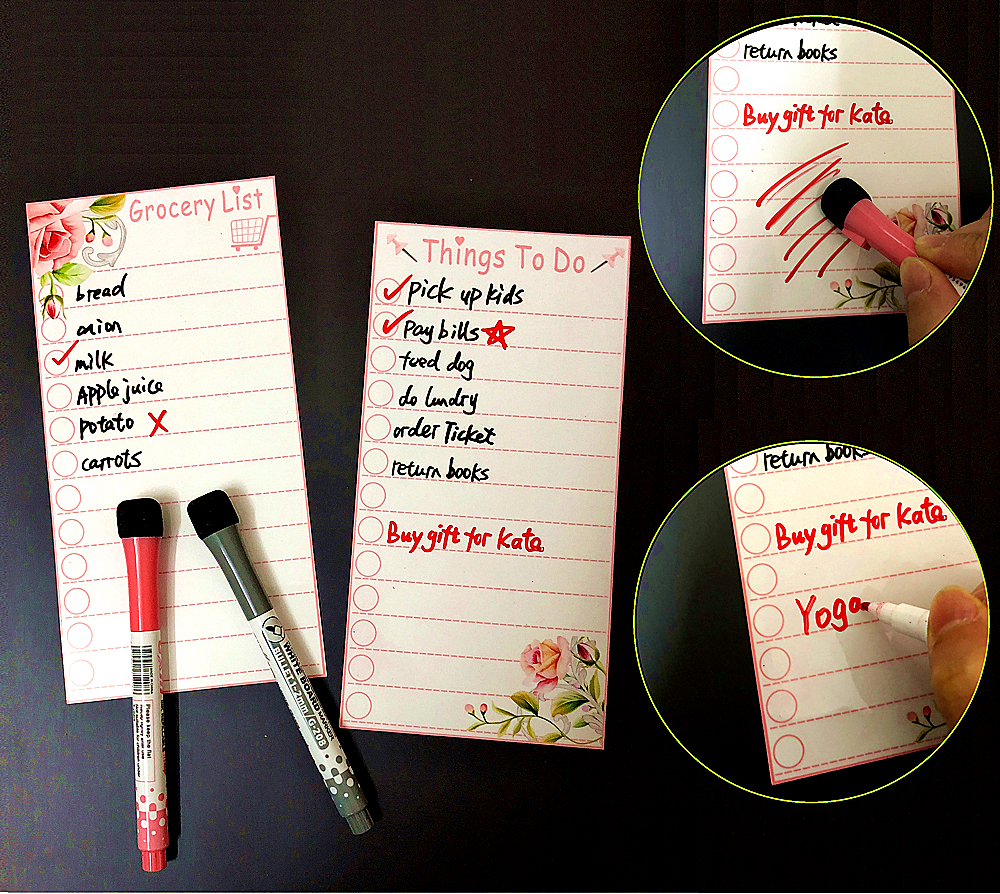 Grocery List
bread
onion
milk
Apple juice
potato X
carrots
Things To Do
Pick up kids
Pay bills
feed dog
do lundry
order Ticket
return books
Buy gift for Kate
WHITE BOARD MARKER
G-208
Please keep the flat
return books
Buy gift for Kate
return books
Buy gift for Kate
Yoga